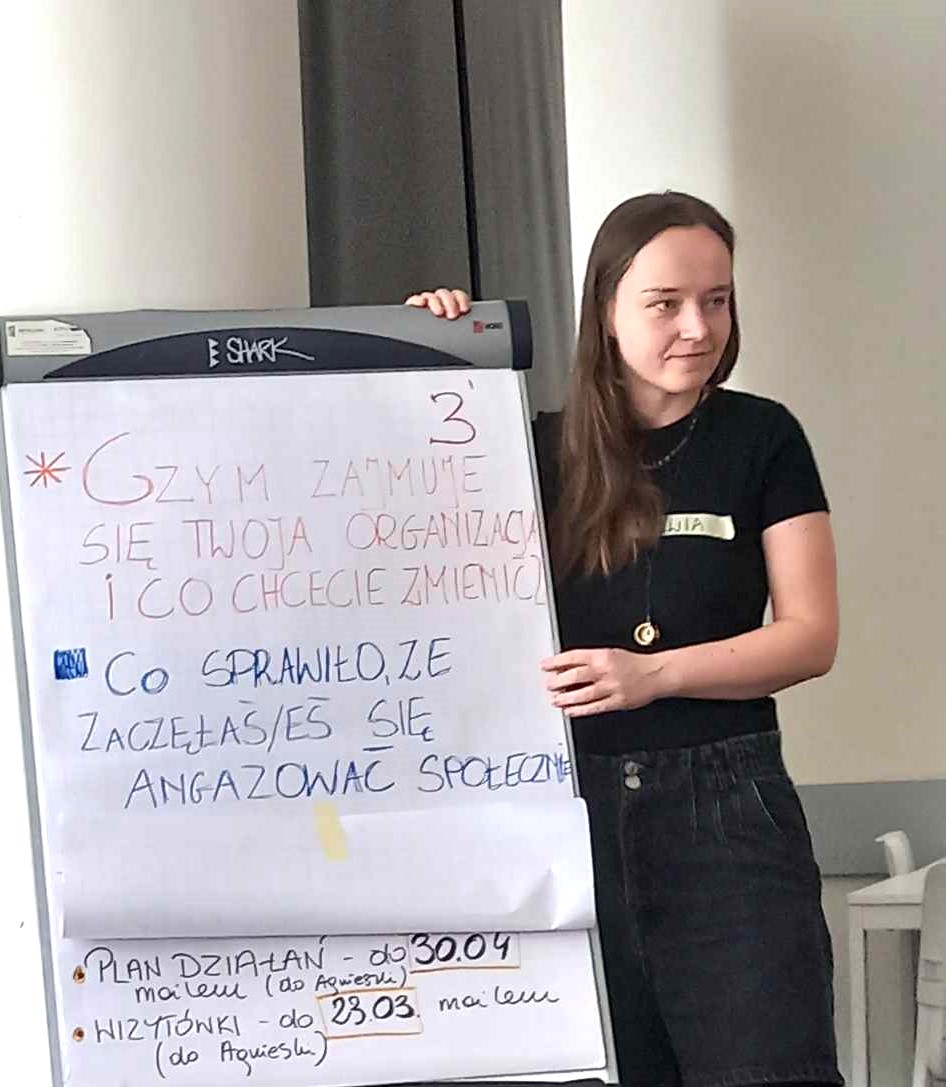 SHARK
3'
* CZYM ZAJMUJE
SIĘ TWOJA ORGANIZACJA
i CO CHCECIE ZMIENIĆ
Co SPRAWIŁO, ZE
ZACZĘŁAŚ/EŚ SIĘ
ANGAZOWAĆ SPOŁECZNIE
WIA
• PLAN DZIAŁAŃ - do 30.04
mailem (do Agnieszki)
• WIZYTÓWKI - do 23.03. mailem
(do Agnieszki)